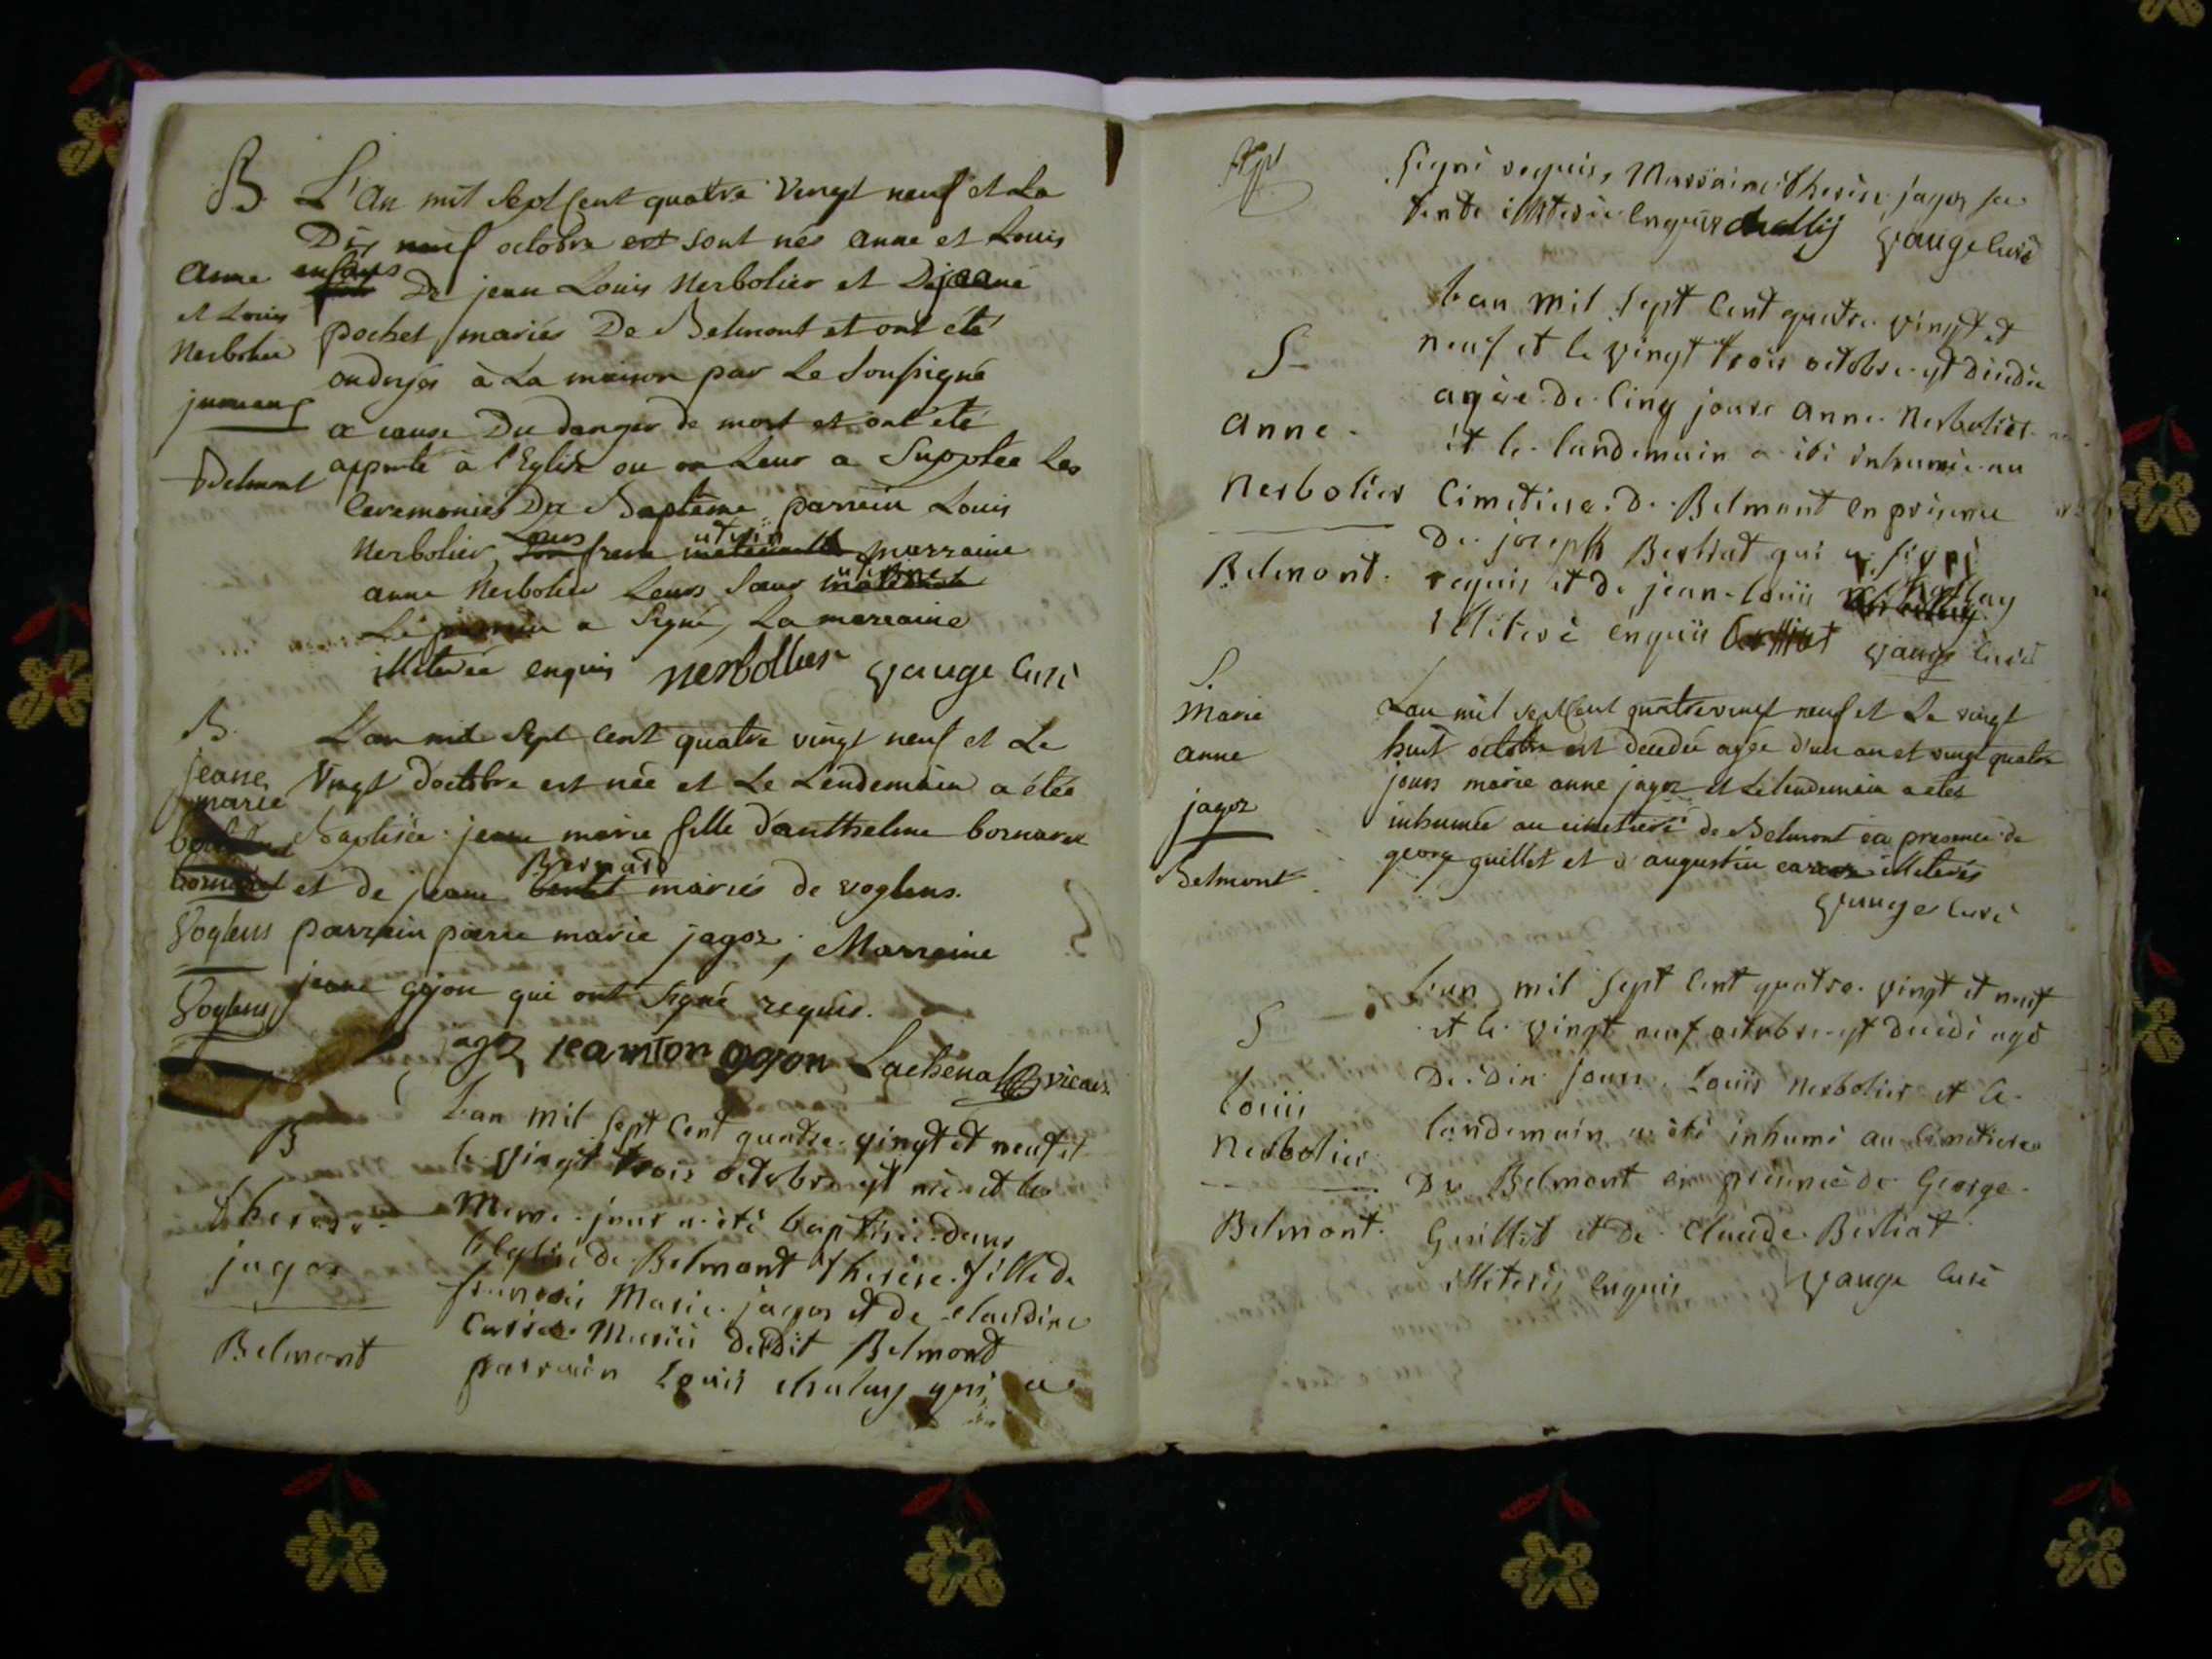 B. L'an mil sept Cent quatre vingt neuf et La
Dix neuf octobre est sont nés anne et Louis
Anne et Louis Nerbolier jumeaux
Belmont
enfans De jean Louis Nerbolier et De jeanne
pochet mariés De Belmont et ont été
ondoyés à La maison par Le Soussigné
a cause Du danger de mort et ont été
apporté à l'Eglise ou on Leur a Supplée Les
Ceremonies Du Baptême parrein Louis
Nerbolier Leurs frere uterin marraine
anne Nerbolier Leurs Sœur uterine
Le parrein a Signé, La marraine
illiterée enquis nerbollier vauge Curé
B.
jeanne marie
Voglens
Voglens
L'an mil Sept Cent quatre vingt neuf et Le
Vingt d'octobre est née et Le Lendemain a étée
Baptisée jeane marie fille d'anthelme bornarel
et de jeanne Bernard mariés de voglens.
parrein pierre marie jagoz; Marreine
jeane gojon qui ont Signé requis.
jagoz jeanton gojon Lachenal vicair
B
Therese jagoz
Belmont
L'an mil Sept Cent quatre vingt et neuf et
le vingt trois octobre est née et le
meme jour a été baptisée dans
l'eglise de Belmont therese fille de
francois Marie jagoz et de claudine
Mariés dudit Belmont
parrain Louis chalay qui a
Signé requis, Marraine therese jagoz sa
tante illiterée enquis challij vauge Curé
S
Anne Nerbolier
Belmont.
L'an mil Sept Cent quatre vingt et
neuf et le vingt trois octobre est dicédée
agée de Cinq jours Anne Nerbolier
et le landemain a été inhumée au
Cimetiere de Belmont en présence
De joseph Berliat qui a signé
requis et de jean-Louis
illiteré enquis Berlliat vauge Curé
S.
Marie anne jagoz
Belmont
L'an mil sept Cent quatre vingt neuf et Le vingt
huit octobre est decedée agée d'un an et vingt quatre
jours marie anne jagoz et Le lendemain a étée
inhumée au cimetiere de Belmont en presence de
george guillet et d'augustin illiterés
vauge Curé
S
Louis Nerbolier
Belmont.
L'an mil Sept Cent quatre vingt et neuf
et le vingt neuf octobre est decédé agé
De dix jours Louis Nerbolier et le
landemain a été inhumé au Cimetiere
De Belmont en présence de George
Guillet et de Claude Berliat
illiterés enquis vauge Curé